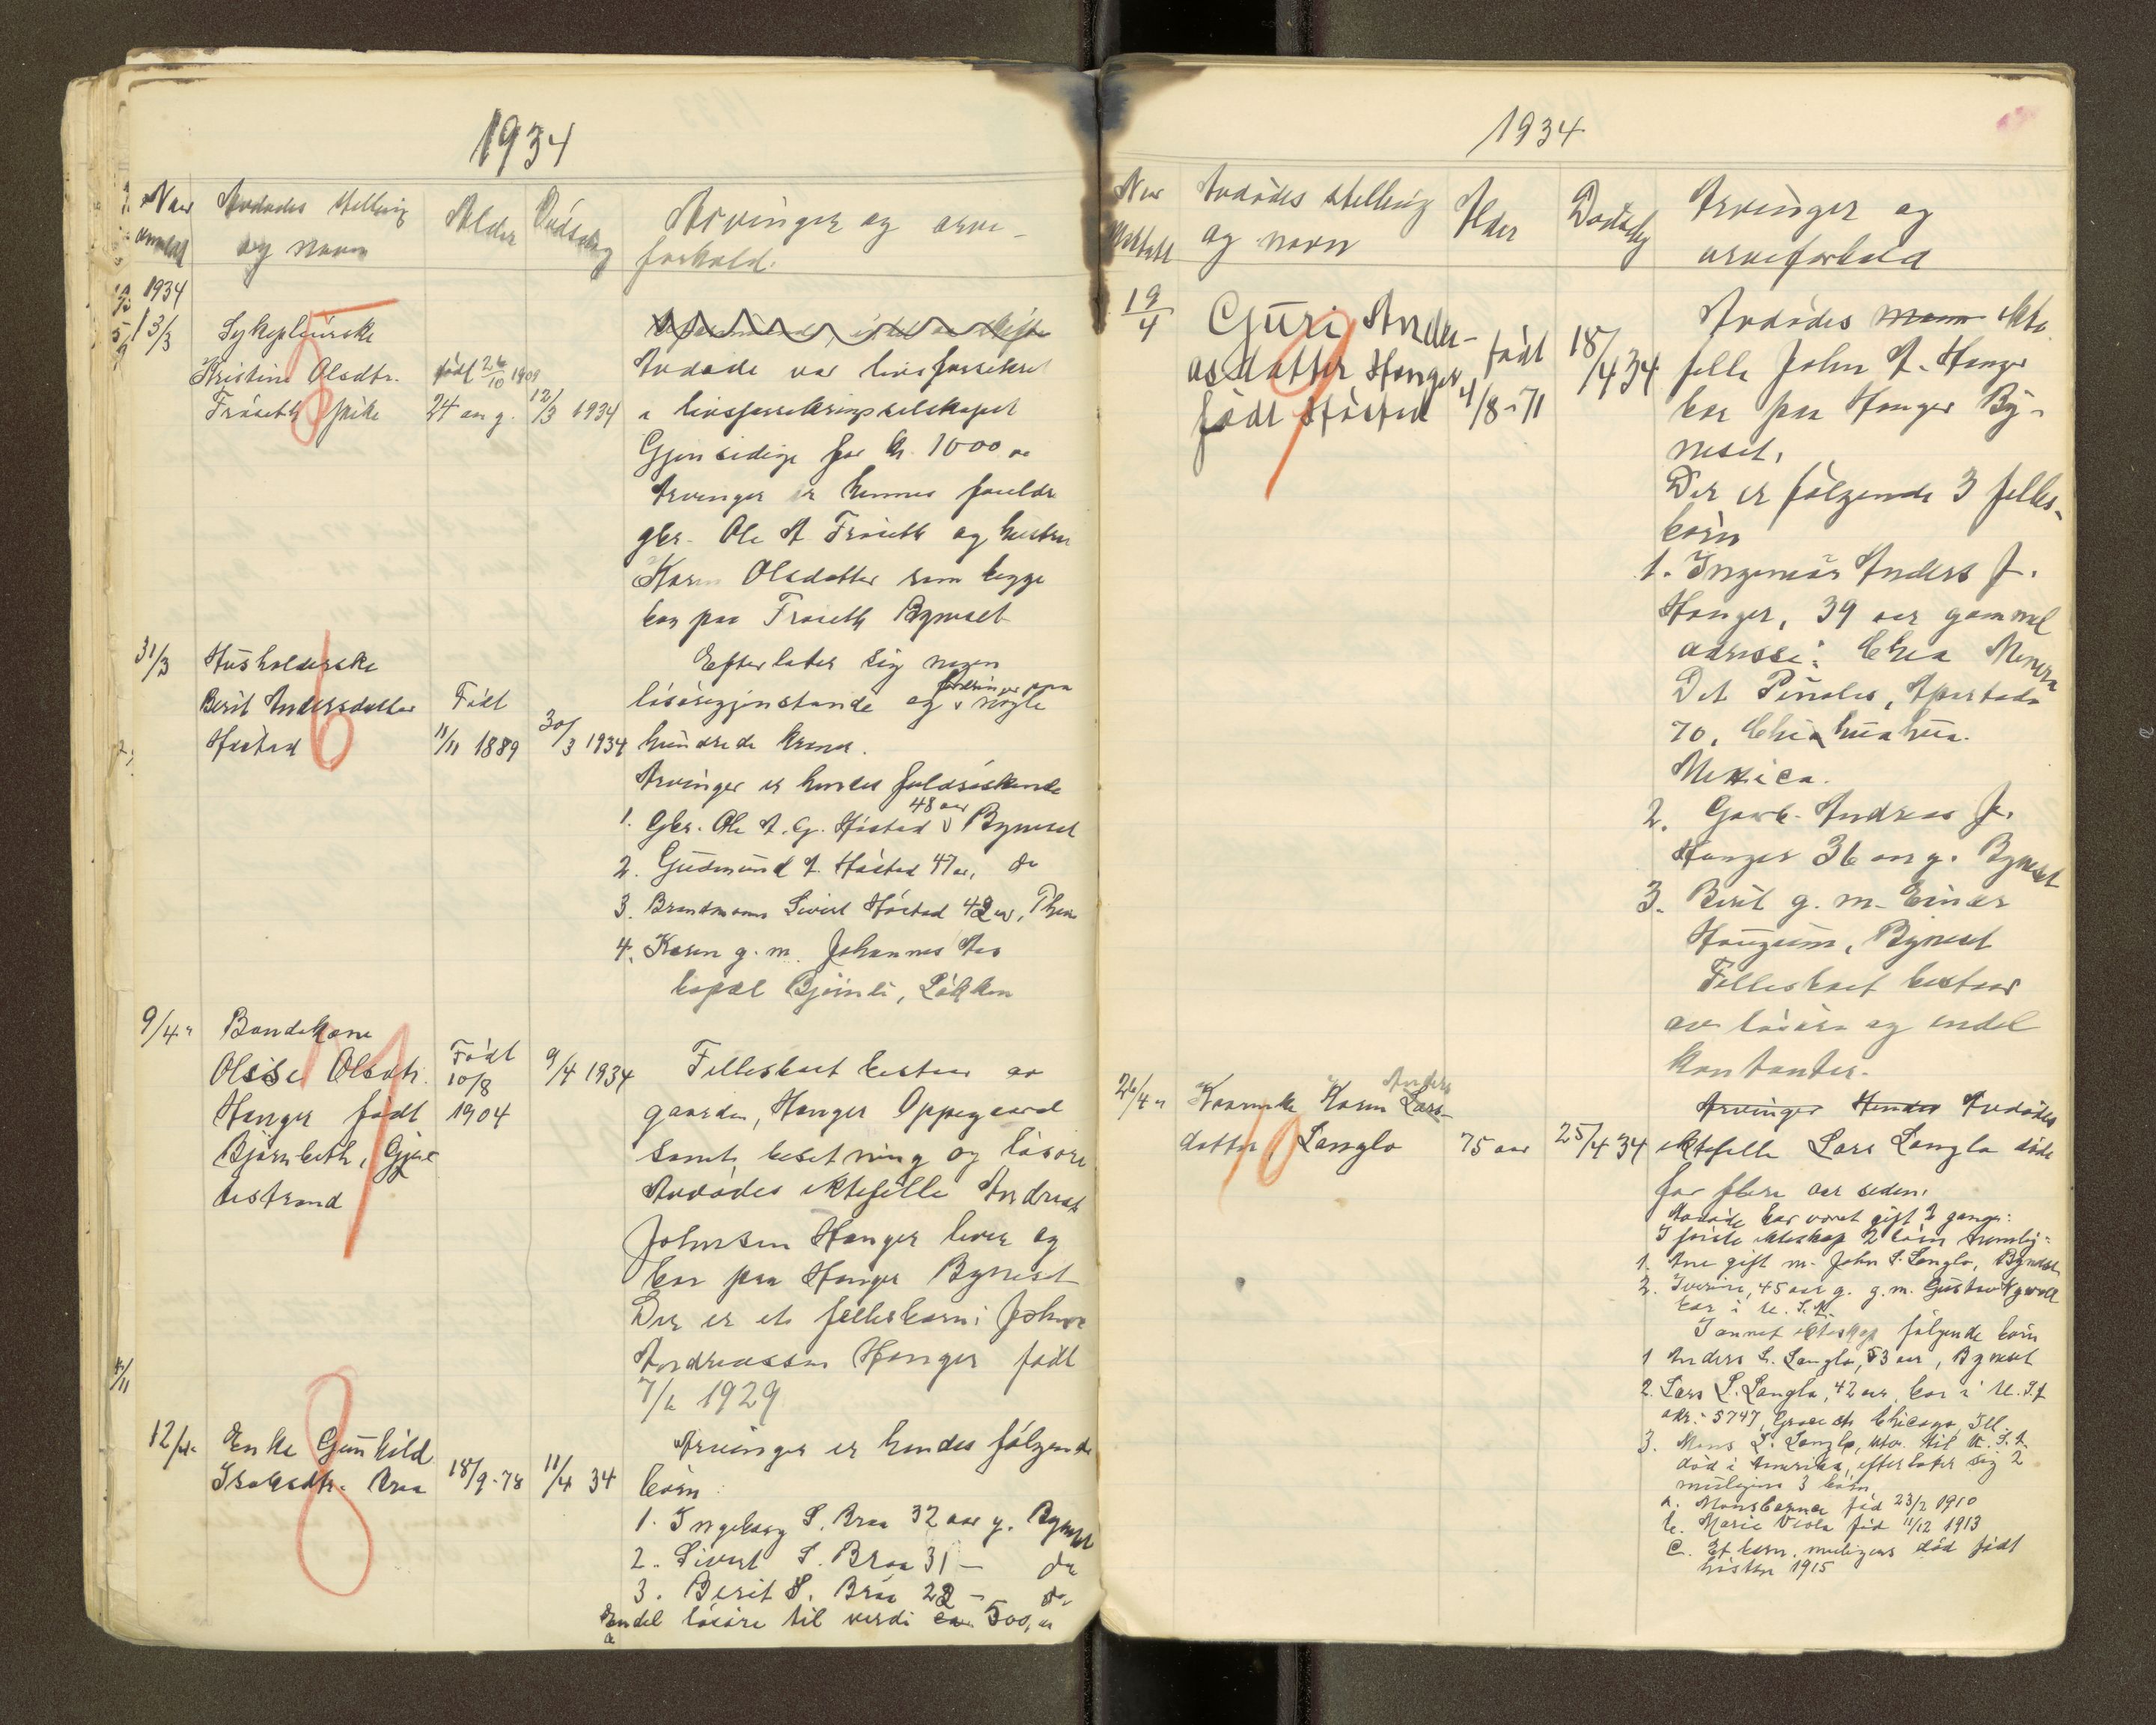 1934
Naar anmeldt
Avdødes stilling og navn
Alder
Dødsdag
Arvinger og arve-
forhold.
1934
13/3
Sykepleierske
Kristine Olsdtr.
Frøseth pike
5
født 26/10 1909
24 aar g.
12/3 1934
Avdøde var livsforsikret
i livsforsikringsselskapet
Gjensidige for kr. 1000,00
Arvinger er hennes foreldre
gbr. Ole A. Frøseth og hustru
Karen Olsdatter som begge
bor paa Frøseth Byneset
31/3
Husholderske
Berit Andersdatter
Høstad
6
Født
11/11 1889
30/3 1934
Efterlater sig nogen
løsøregjenstande og fordringer paa nogle
hundrede kroner.
Arvinger er hendes fuldsøskende
1. Gbr. Ole A. G. Høstad 48 aar Byneset
2. Gudmund A. Høstad 47 aar, do
3. Brandmann Sivert Høstad 42 aar, Thjem
4. Karen g. m. Johannes Aas
bopæl Bjørnli, Løkken
9/4 "
Bondekone
Olise Olsdtr.
Hanger født
Bjørnbeth, Gjøl-
bestrand
7
Født
10/8
1904
9/4 1934
Felleskoet bestaar av
gaarden, Hanger Oppegaard
samt besetning og løsøre
Avdødes ektefelle Andreas
Johnsen Hanger lever og
bor paa Hanger Byneset
Der er et fellesbarn: John
Andreassen Hanger født
7/6 1929
12/4 "
Enke Gunhild
Isaksdtr. Braa
8
18/9-78
11/4 34
Arvinger er hendes følgende
børn:
1. Ingeborg S. Braa 32 aar g. Byneset
2. Sivert S. Braa 31 — do
3. Berit S. Braa 28 — do
Endel løsøre til verdi ca. 500,00
1934
Naar meldt
Avdødes stilling
og navn
Alder
Dødsdag
Arvinger og
arveforhold
19/4
Guri Andre-
asdatter Hanger
født Høstad
9
født
4/8-71
18/4 34
Avdødes mann ekte
felle John A. Hanger
bor paa Hanger By-
neset.
Der er følgende 3 felles-
børn
1. Ingeniør Anders J.
Hanger, 39 aar gammel
adresse: Chia Minera
De Peñoles, Apartado
70, Chihuahua.
Mexico.
2. Garb. Andreas J.
Hanger 36 aar g. Byneset
3. Berit g. m. Einar
Haugum, Byneset
Felleskoet bestaar
av løsøre og endel
kontanter.
26/4 "
Kaarenke Karen Lars- Anders
datter Langlo
10
75 aar
25/4 34
Arvinger Hendes Avdødes
ektefelle Lars Langlo døde
for flere aar siden.
Avdøde har vært gift 2 ganger:
I første ekteskap 2 børn nemlig:
1. Ane gift m. John S. Langlo, Byneset
2. Iverine, 45 aar g. g. m. Gustav
bor i U. S. A.
I annet ekteskap følgende børn
1 Anders L. Langlo, 53 aar, Byneset
2. Lars L. Langlo, 42 aar, bor i U. S. A
adr. 5747, Grace st. Chicago, Ill.
3. Mons L. Langlo, utv. til U. S. A.
død i Amerika, efterlater sig 2
muligens 3 børn
a. Mons født 23/2 1910
b. Marie Viola fød 11/12 1913
c. Et barn, muligens død født
høsten 1915